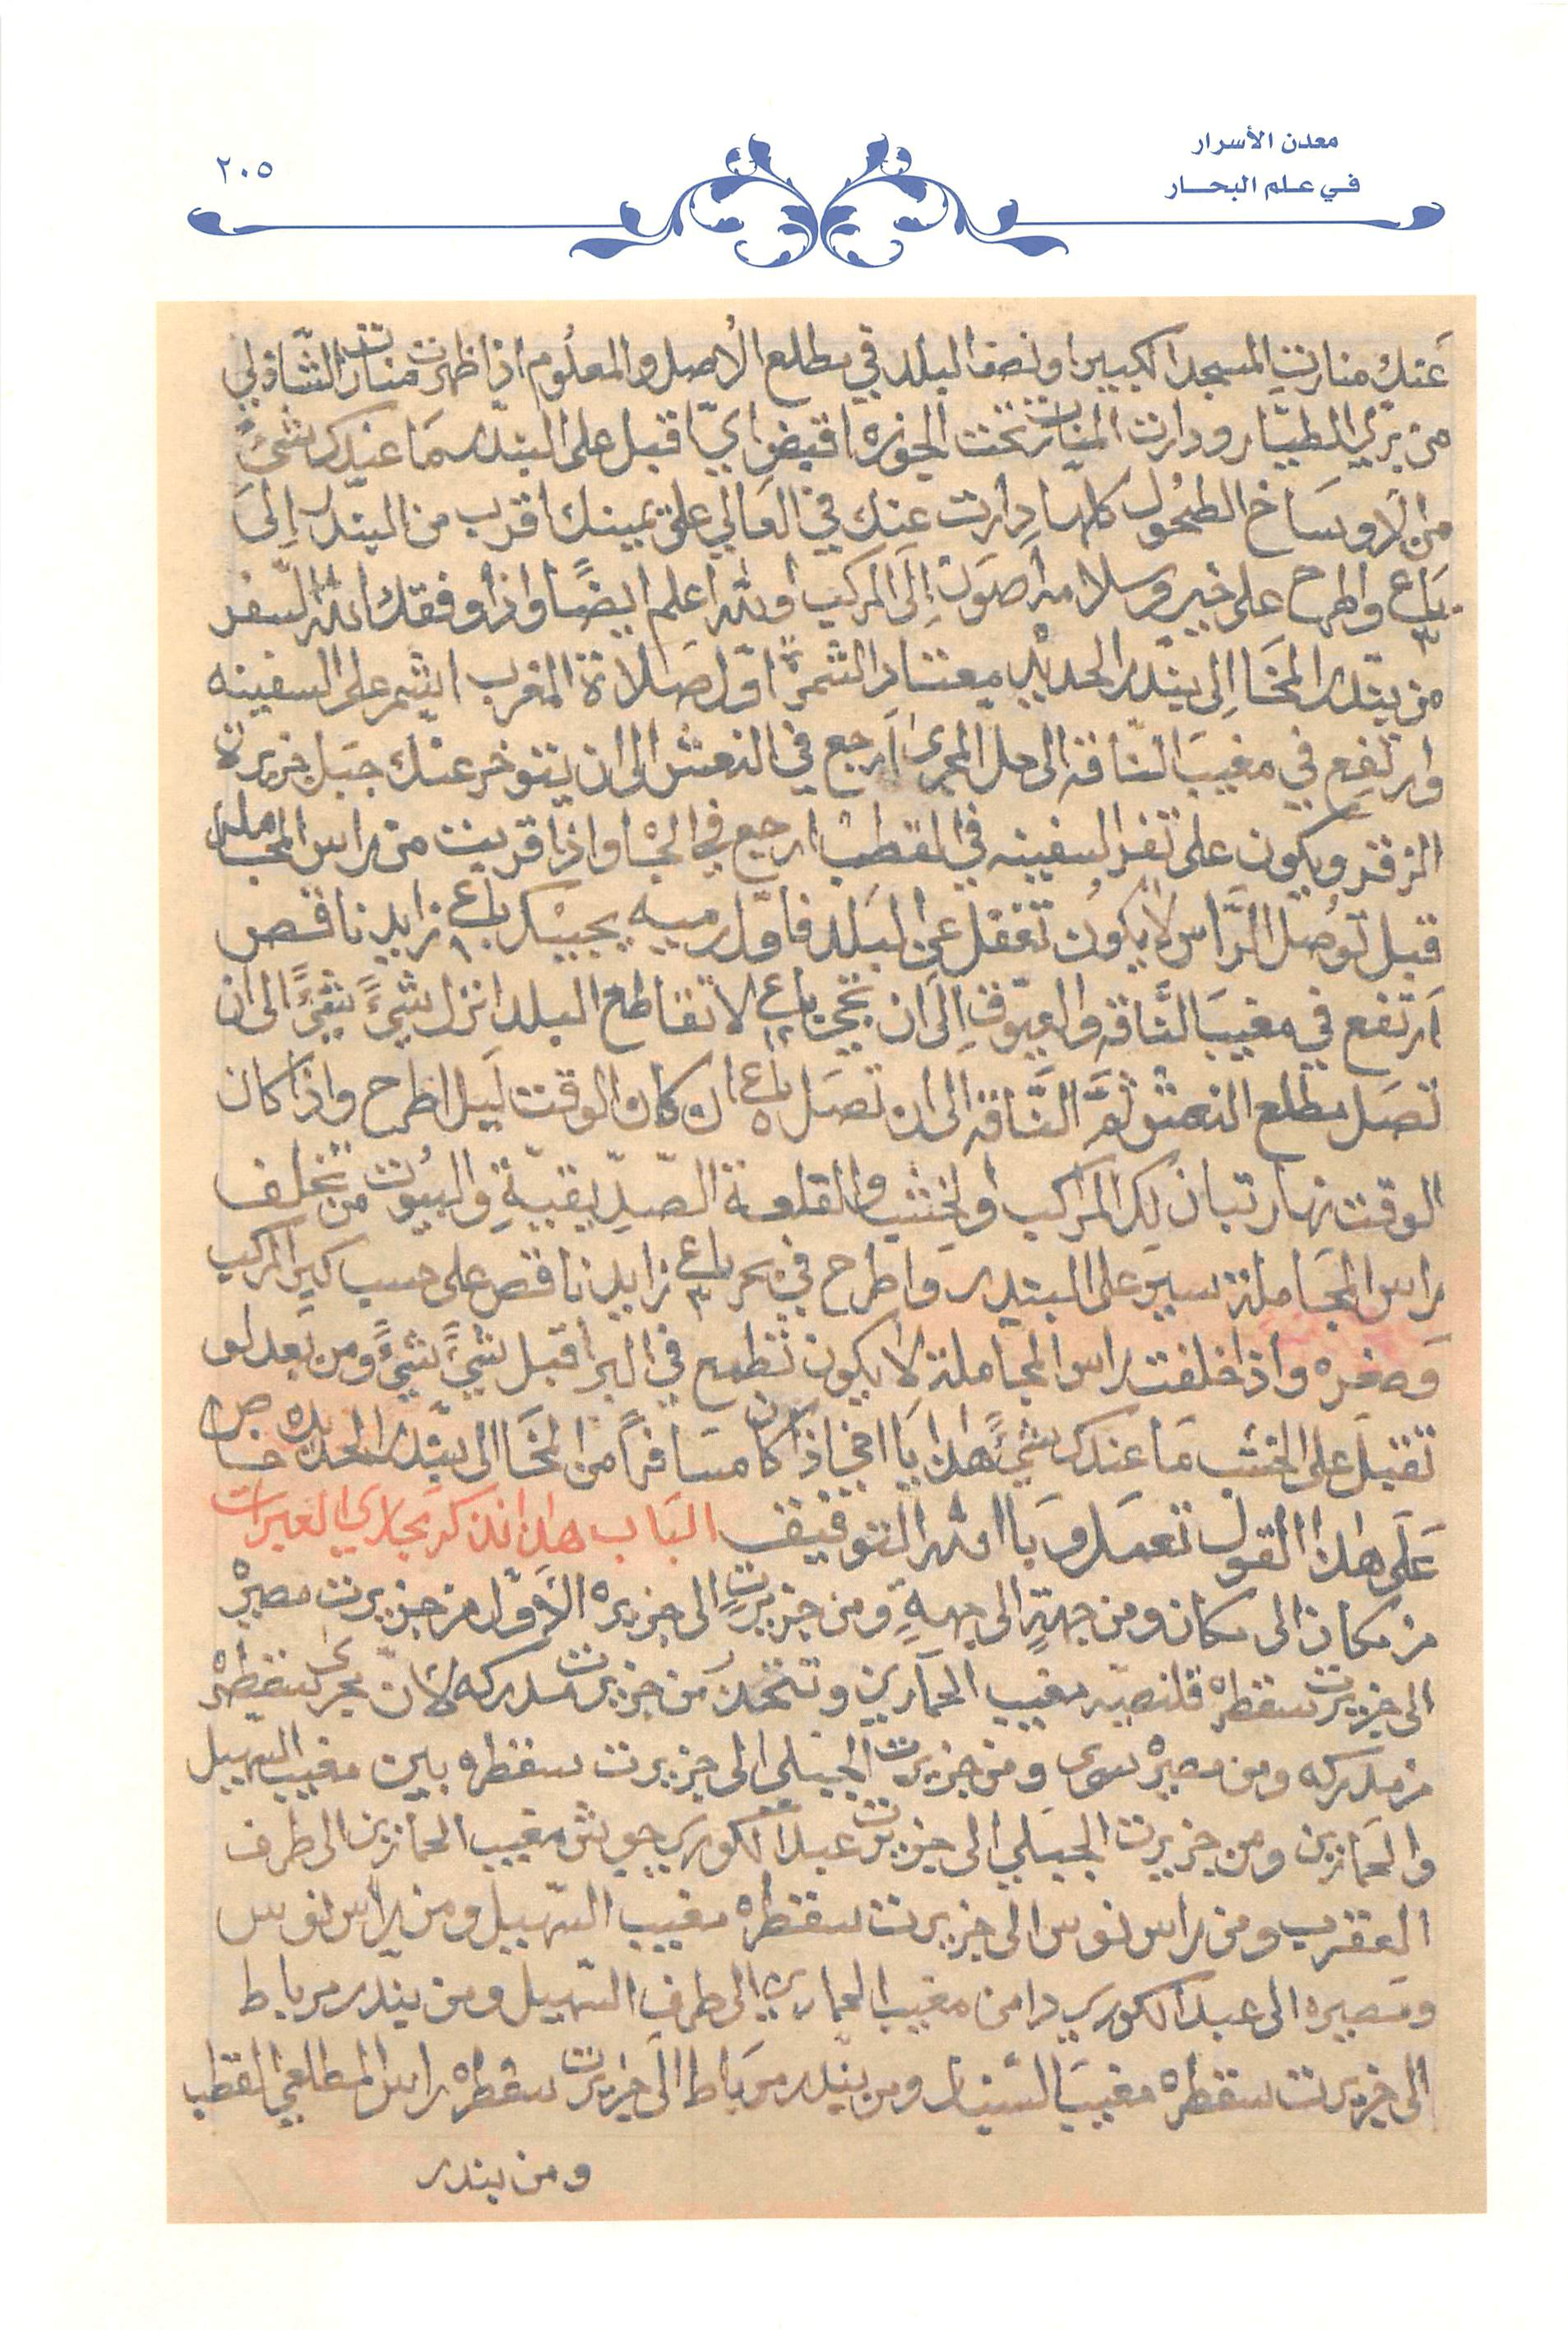 معدن الأسرار
في علم البحار
٢٠٥
عنك منارت المسجد الكبير او نصف البلد في مطلع الاصل والمعلوم اذا ظهرت منارت الشاذلي
من بري الطيار ودارت المنارت تحت الجوزه اقبض اي اقبل على البندر ما عندك شيء
من الاوساخ الطحول كلها دارت عنك في العالي على يمينك اقرب من البندر الى
باع ٣ واطرح على خير وسلامه اصون الى المركب والله اعلم ايضًا واذا وفقك الله السفر
من بندر المخا الى بندر الحديد معتاد الشمرة اول صلاة المغرب ايشم على السفينه
وارتفع في مغيب الناقه الى حل المجرى ارجع في النعش الى ان يتوخر عنك جبل جزيرة
الزقر ويكون على تفر السفينه في القطب ارجع في الجا واذا قربت من راس المجامله
قبل توصل الراس لا يكون تغفل عن البلد فاول رميه يجيبك باع ١٠ زايد ناقص
ارتفع في مغيب الناقه والعيوق الى ان تجي باع ١٢ لا تقاطع البلد انزل شيءً شيءً الى ان
تصل مطلع النعش ثم الناقه الى ان تصل باع ٥ ان كان الوقت ليل اطرح واذا كان
الوقت نهار تبان لك المراكب والخشب والقلعة الصديقية والبيوت من تخلف
راس المجاملة سير على البندر واطرح في بحر باع ٣ زايد ناقص على حسب كبر المركب
وصغره واذا خلفت راس المجاملة لا يكون تطمع في البر اقبل شيءً شيءً ومن بعد لو
تقبل على الخشب ما عندك شيءً هذا يا اخي اذا كان مسافرًا من المخا الى بندر الحديده خاص
على هذا القول تعمل وبا الله التوفيق الباب هذا نذكر مجاري العبرات
من مكان الى مكان ومن جهةٍ الى جهةٍ ومن جزيرتٍ الى جزيره الاول من جزيرت مصيرْه
الى جزيرت سقطره قلنصيه مغيب الحمارين وتتخذ من جزيرت مدركه لان مجرى سقطرْه
من مدركه ومن مصيرْه سوى ومن جزيرت الجبلي الى جزيرت سقطره بين مغيب السهيل
والحمارين ومن جزيرت الجبلي الى جزيرت عبد الكوري جوش مغيب الحمارين الى طرف
العقرب ومن راس نوس الى جزيرت سقطره مغيب السهيل ومن راس نوس
ومصيره الى عبد الكوري دامن مغيب الحمارين الى طرف السهيل ومن بندر مرباط
الى جزيرت سقطره مغيب السنبار ومن بندر مرباط الى جزيرت سقطره راس المطلعي القطب
ومن بندر